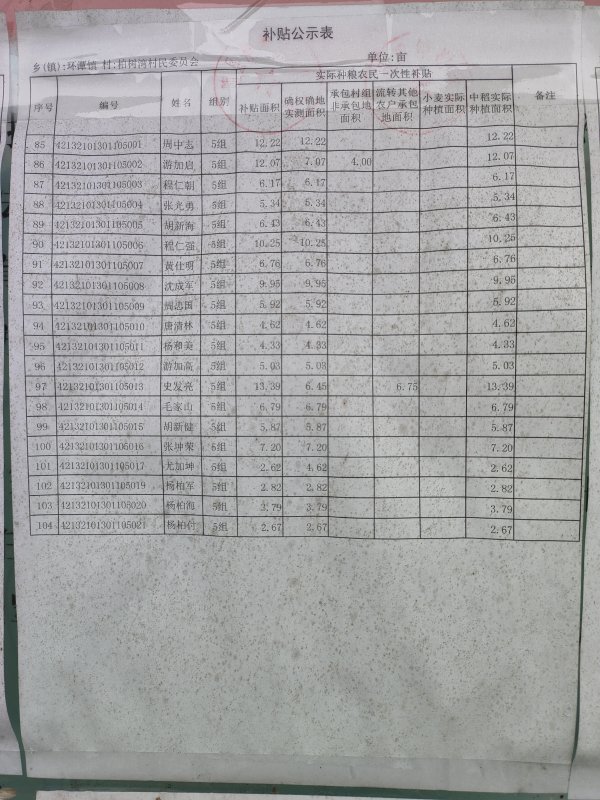 补贴公示表
乡(镇):环潭镇 村:柏树湾村民委员会 单位:亩
序号 编号 姓名 组别 实际种粮农民一次性补贴 备注
补贴面积 确权确地实测面积 承包村组非承包地面积 流转其他农户承包地面积 小麦实际种植面积 中稻实际种植面积
85 42132101301105001 周中志 5组 12.22 12.22 12.22
86 42132101301105002 游加启 5组 12.07 7.07 4.00 12.07
87 42132101301105003 程仁朝 5组 6.17 6.17 6.17
88 42132101301105004 张光勇 5组 5.34 5.34 5.34
89 42132101301105005 胡新海 5组 6.43 6.43 6.43
90 42132101301105006 程仁强 5组 10.25 10.25 10.25
91 42132101301105007 黄仕明 5组 6.76 6.76 6.76
92 42132101301105008 沈成军 5组 9.95 9.95 9.95
93 42132101301105009 周志国 5组 5.92 5.92 5.92
94 42132101301105010 唐清林 5组 4.62 4.62 4.62
95 42132101301105011 杨和美 5组 4.33 4.33 4.33
96 42132101301105012 游加高 5组 5.03 5.03 5.03
97 42132101301105013 史发亮 5组 13.39 6.45 6.75 13.39
98 42132101301105014 毛家山 5组 6.79 6.79 6.79
99 42132101301105015 胡新健 5组 5.87 5.87 5.87
100 42132101301105016 张坤荣 5组 7.20 7.20 7.20
101 42132101301105017 尤加坤 5组 2.62 4.62 2.62
102 42132101301105019 杨柏军 5组 2.82 2.82 2.82
103 42132101301105020 杨柏海 5组 3.79 3.79 3.79
104 42132101301105021 杨柏付 5组 2.67 2.67 2.67